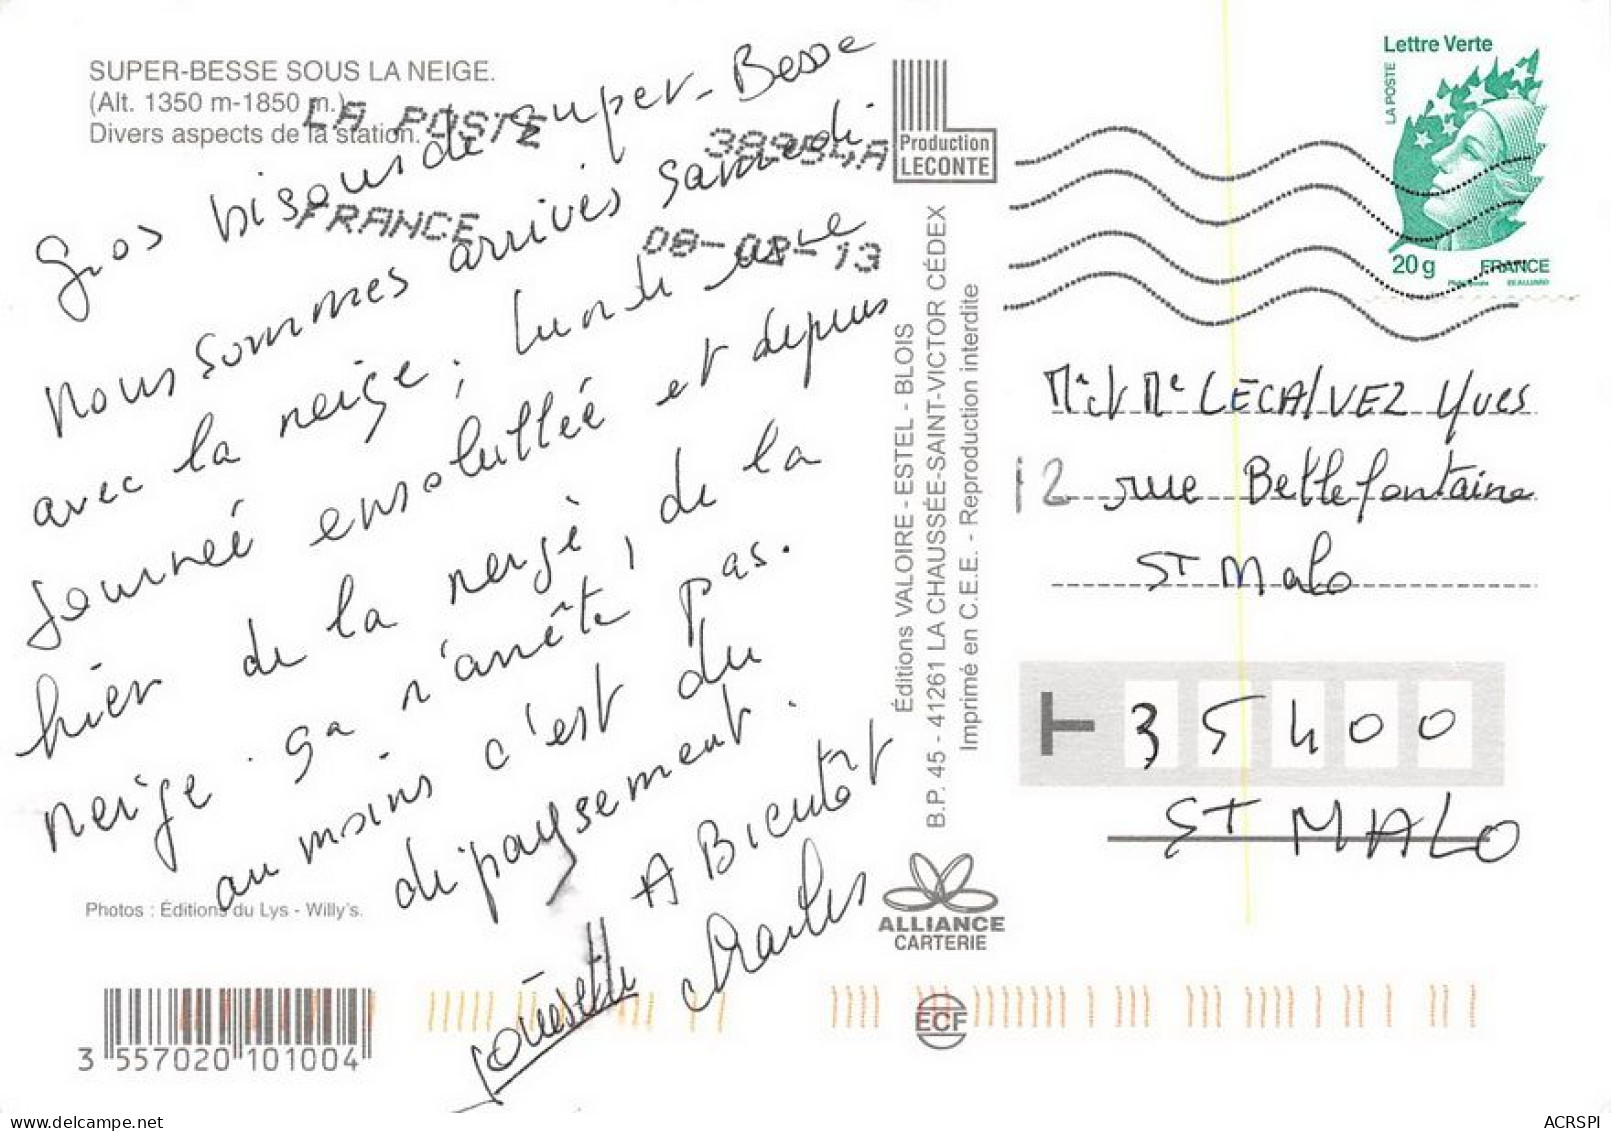 SUPER-BESSE SOUS LA NEIGE.
(Alt. 1350 m-1850 m.)
Divers aspects de la station.
LA POSTE
FRANCE
38254A
08-02-13
Gros bisous de Super-Besse
Nous sommes arrivés samedi
avec la neige, lundi une
journeé ensoleillée et depuis
hier de la neige, de la
neige. ça n'arrête pas.
au moins c'est du
dépaysement.
A Bientôt
Charles
Photos : Éditions du Lys - Willy's.
3 557020 101004
Production
LECONTE
Éditions VALOIRE - ESTEL - BLOIS
B.P. 45 - 41261 LA CHAUSSÉE-SAINT-VICTOR CÉDEX
Imprimé en C.E.E. - Reproduction interdite
ALLIANCE
CARTERIE
ECF
Lettre Verte
LA POSTE
20 g FRANCE
Mr et Me LECALVEZ Yves
12 rue Bellefontaine
ST Malo
35400
ST MALO
ACRSPI
www.delcampe.net